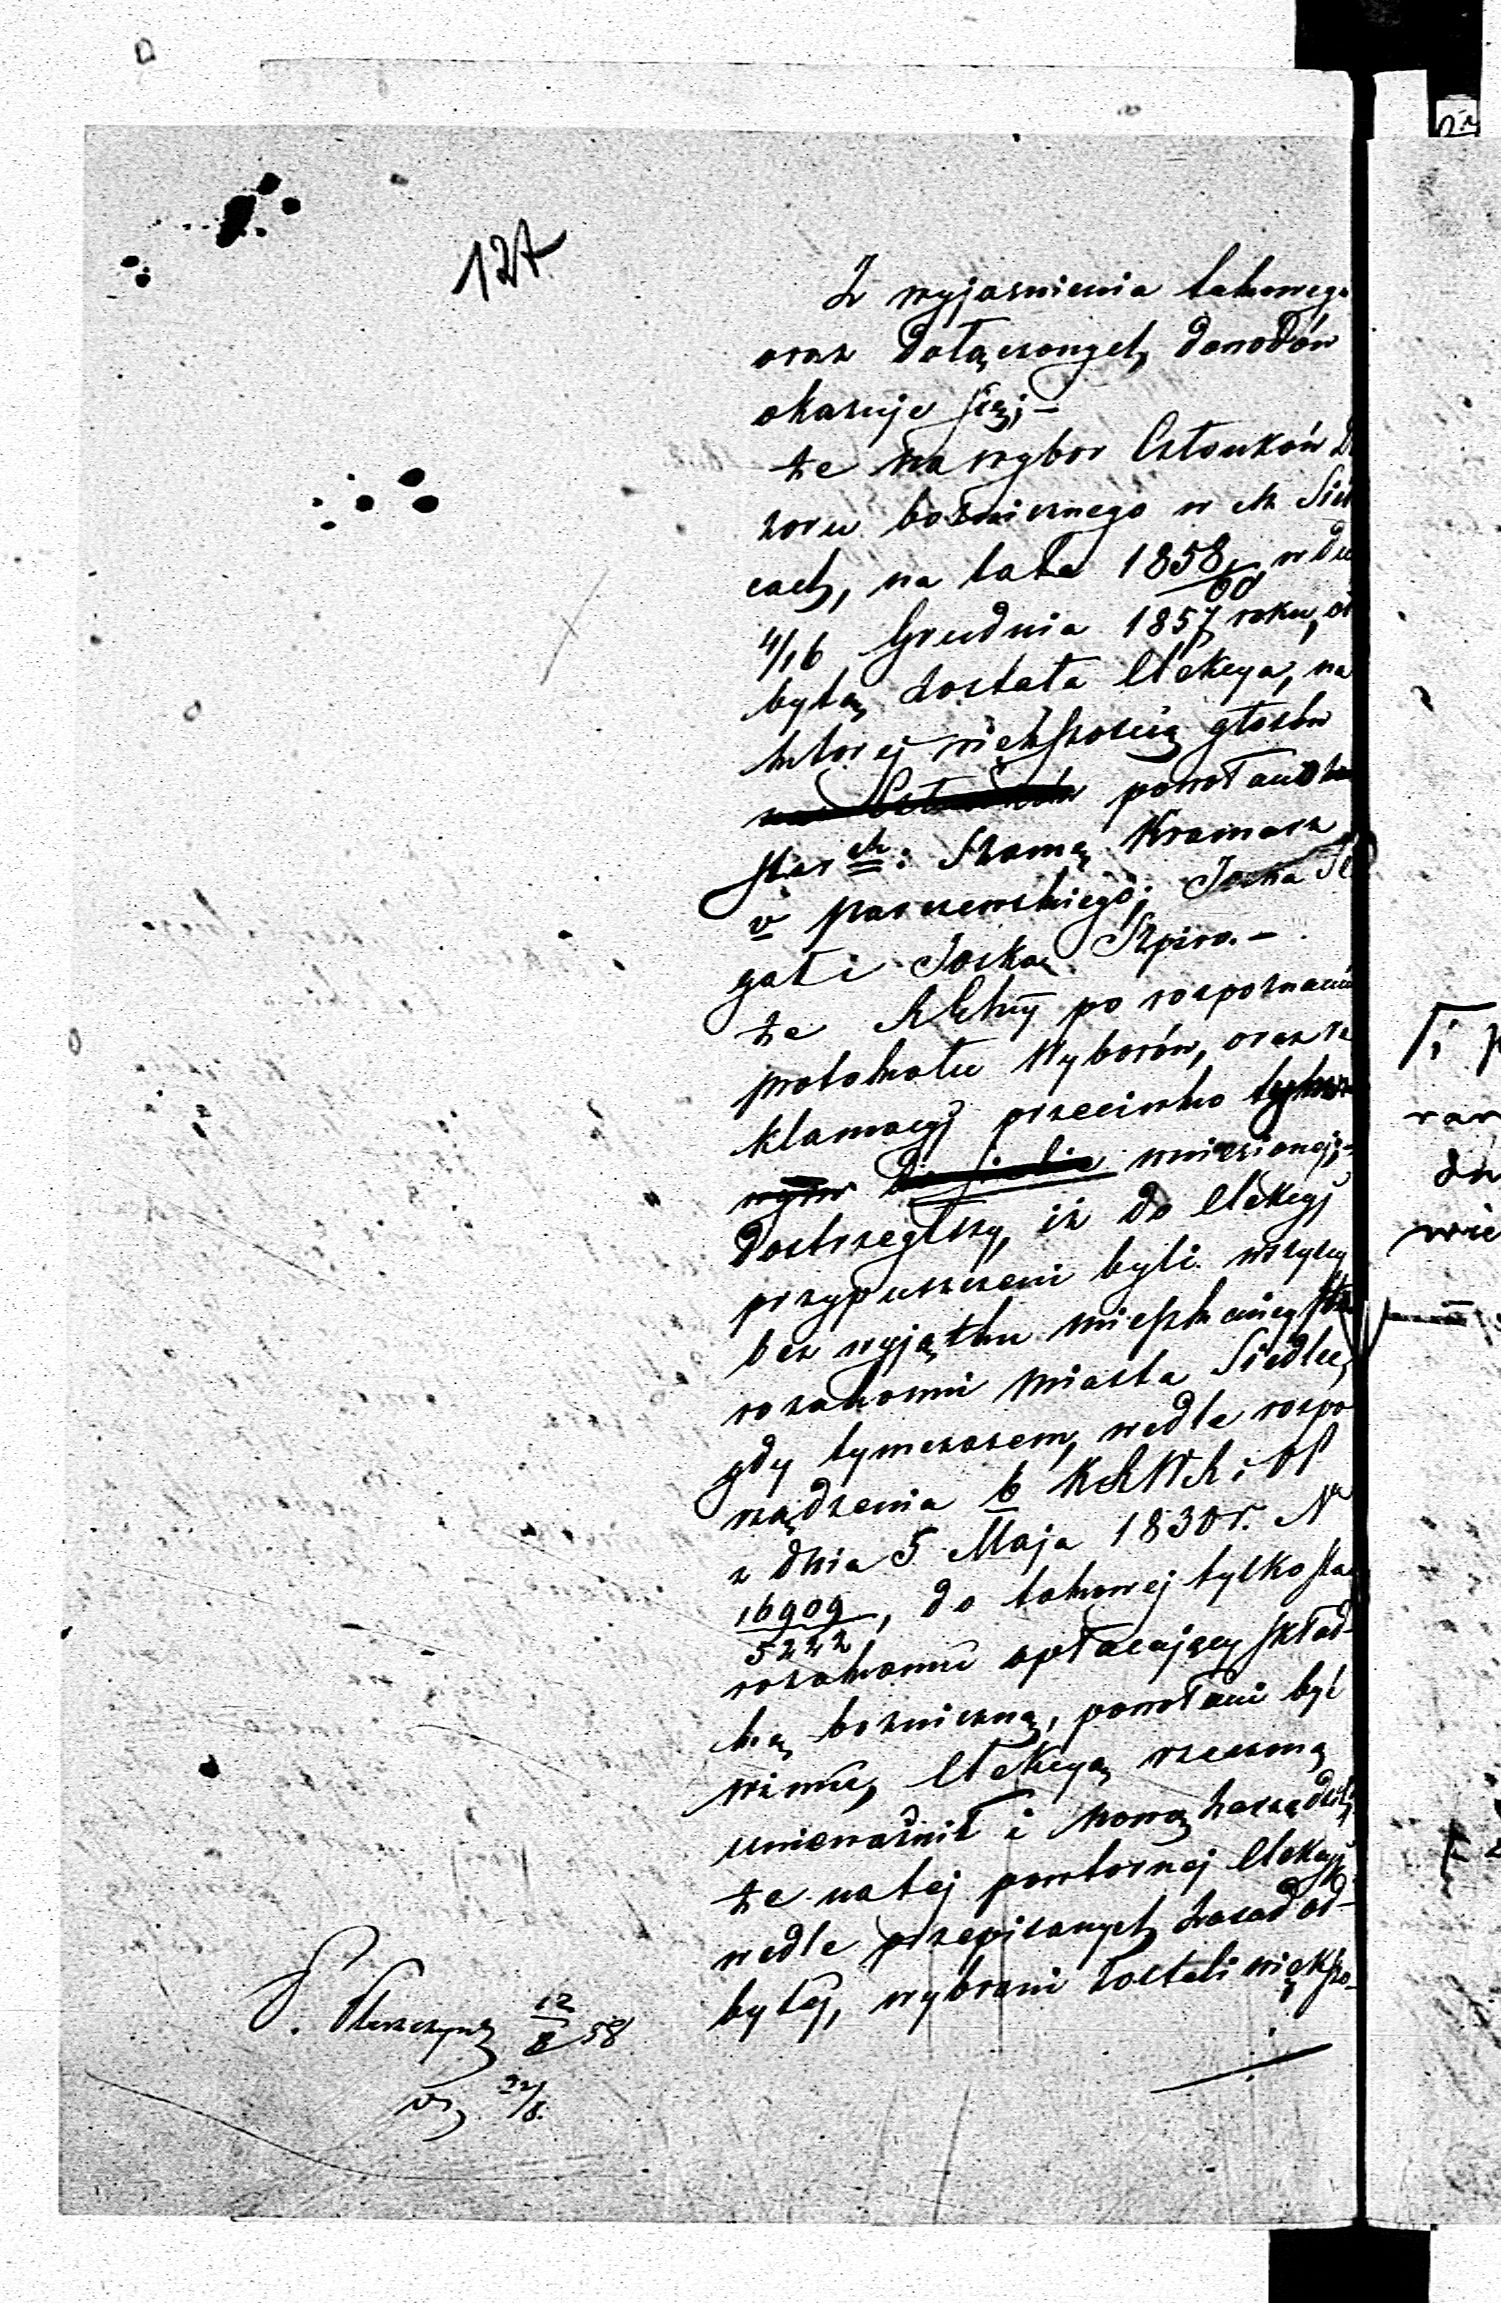 127
Z wyjasnienia takowego
oraz dołączonych dowodów
okazuje się;-
że na wybor Członków D
zoru bożnicznego w M Siedl
cach, na lata 1858/60 w dn
4/16 Grudnia 1857 roku, od
bytą została Elekcya, na
ktorej większością głosów
powołano
star: Szomą Kramarz
v Parczewskiego; Joska
gał i Joska Szpiro.-
że po rozpoznaniu
protokołu Wyborów, oraz re
klamacyj przeciwko
wniesionej,-
dostrzegłszy, iż do Elekcyj
przypuszczeni byli wszyscy
bez wyjątku mieszkańcy sta
rozakonni miasta Siedlec,
gdy tymczasem, wedle rozpo
rządzenia b KRW
z dnia 5 Maja 1830 r. N
16909/5222, do takowej tylko sta
rozakonni opłacający skład-
kę bożniczną, powołani być
winni, Elekcyą rzeczoną
unieważnił i nową zarządził,
że na tej powtornej Elekcyj
wedle przepisanych zasad od-
bytej, wybrani zostali większo-
12/8 58
22/8.